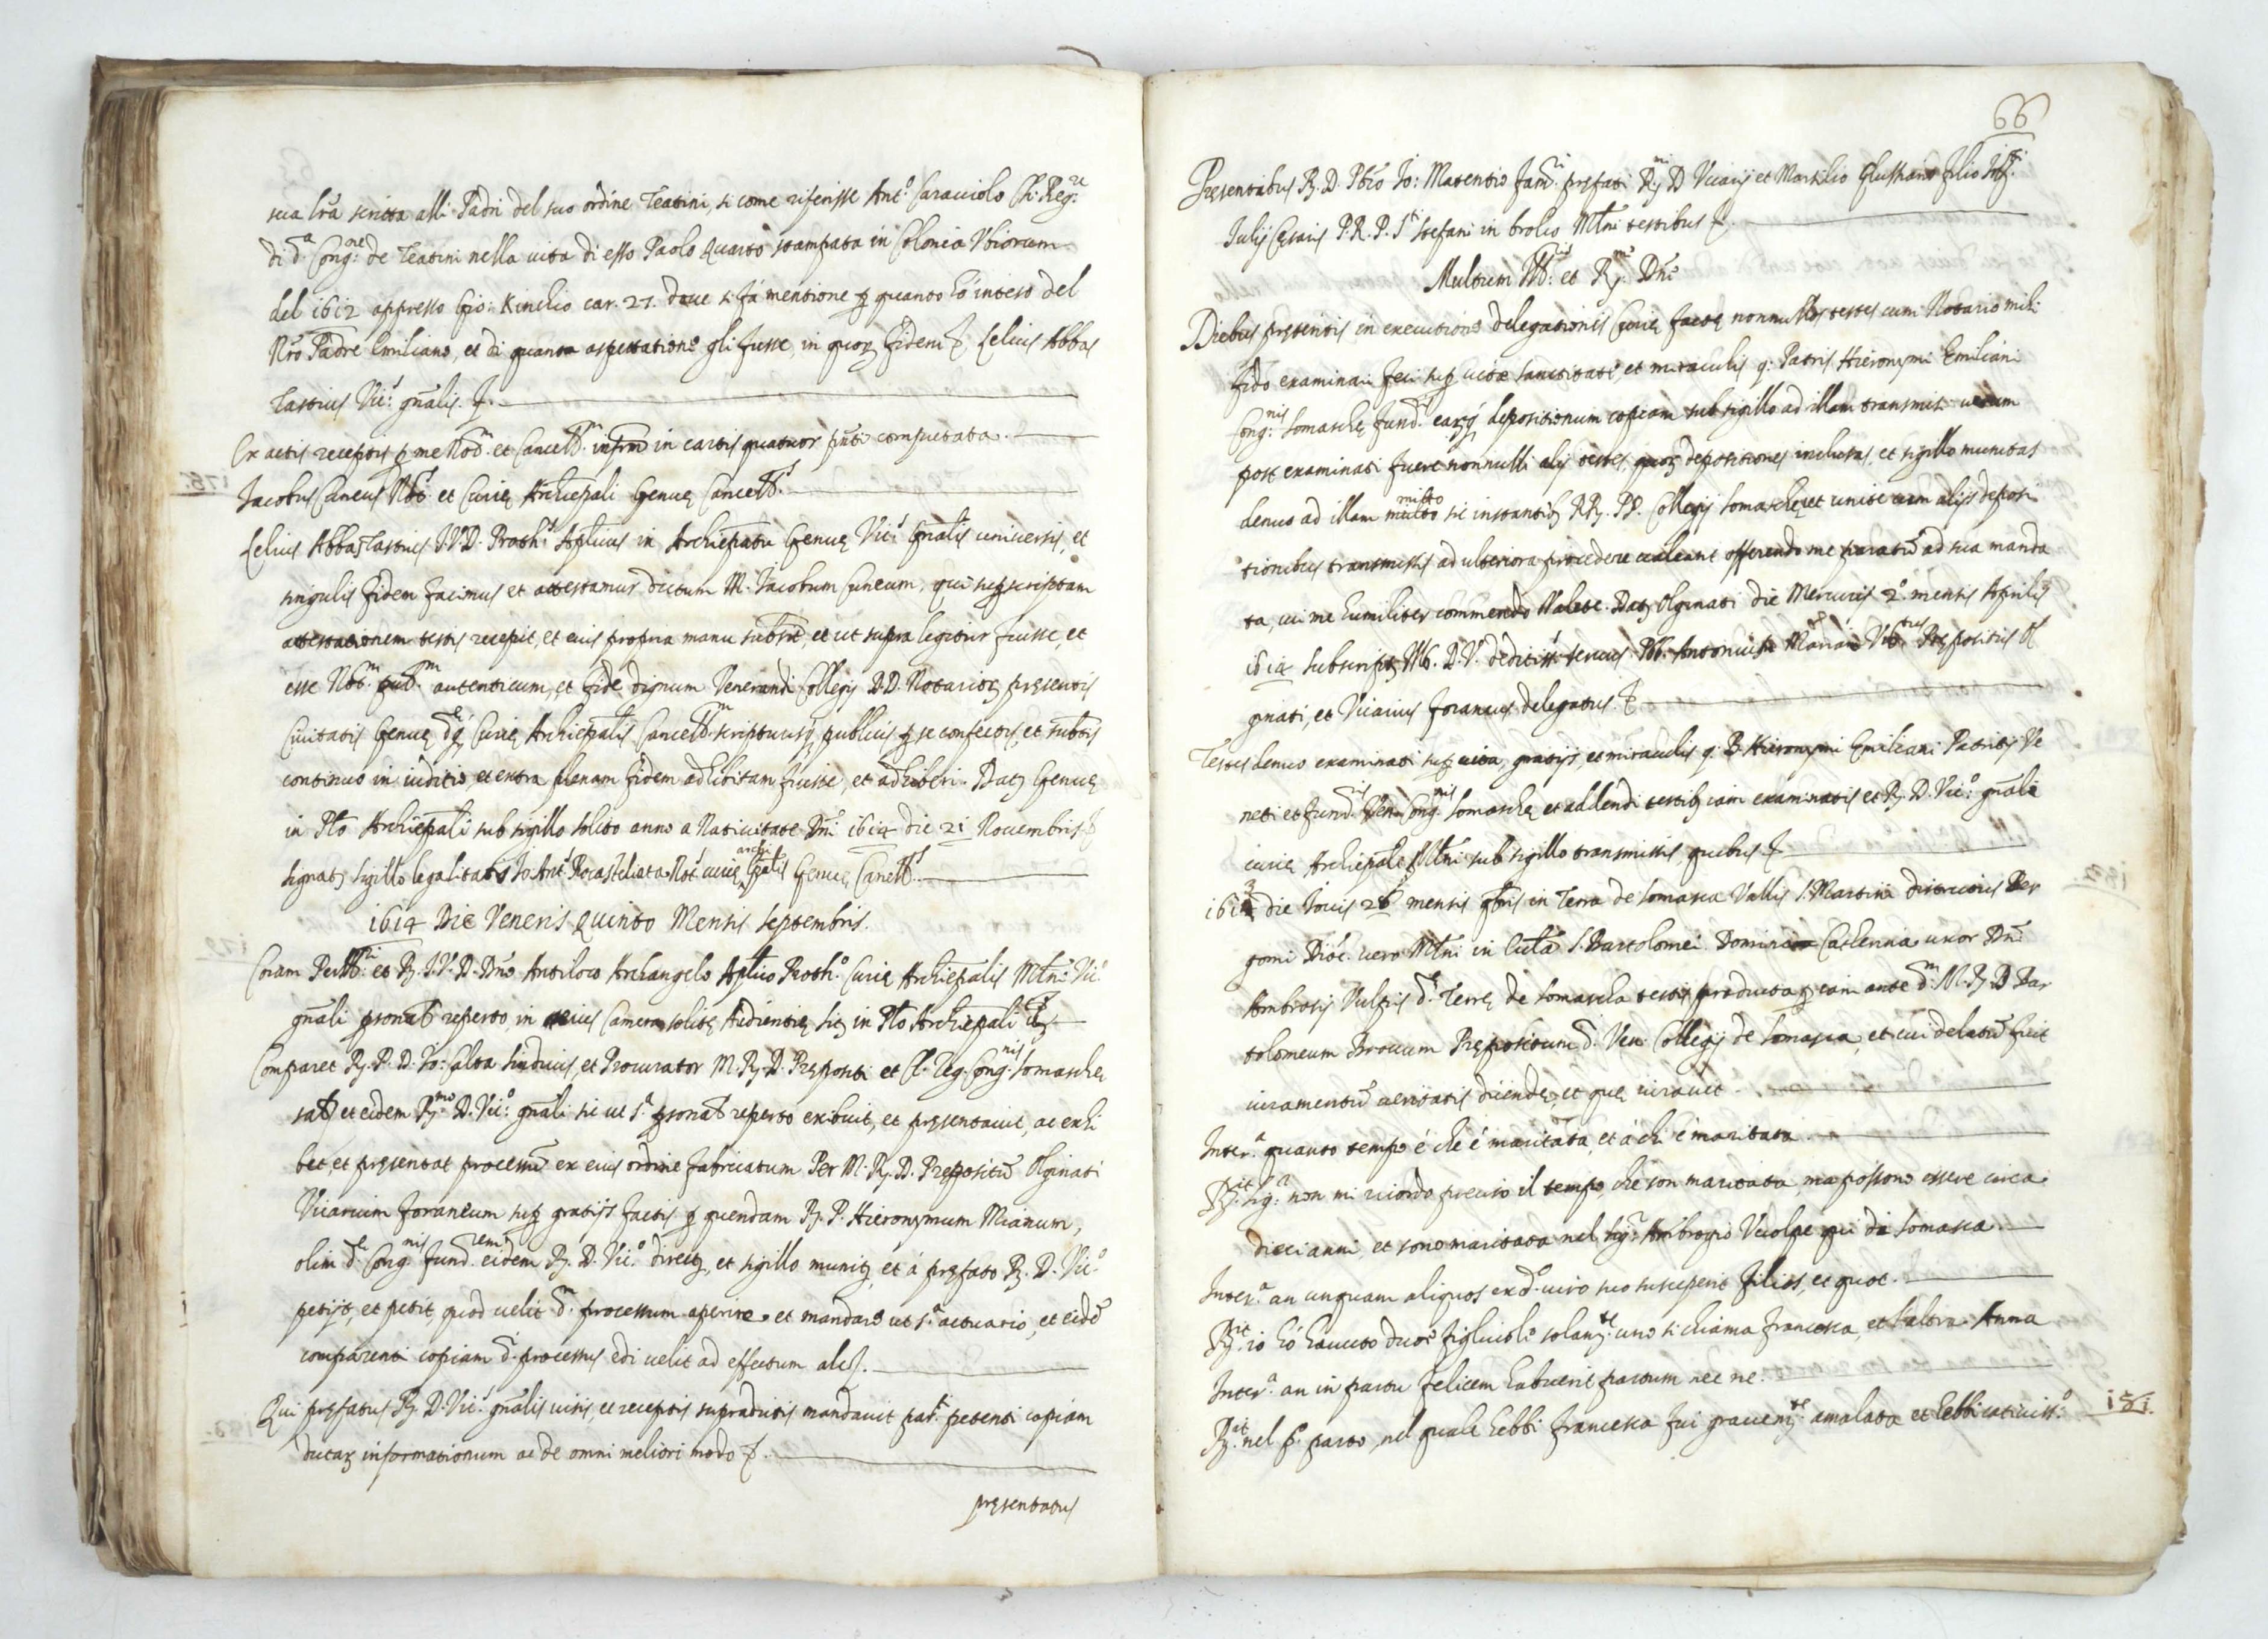 sua lr̃a scritta alli Padri del suo ordine Teatini, si come riferisse Ant.º Caracciolo Ch. Reg.re
di d.ª Cong.ne de Teatini nella vita di esso Paolo Quarto stampata in Colonia Vbiorum
del 1612 appresso Gio: Kinchio car. 27. doue si fà mentione ꝑ quanto hò inteso del
Nr̃o Padre Emiliano, et di quanta aspettatione gli fusse, in quoꝝ fidem &. Lelius Abbas
Tastius Vic.s gñalis &.
Ex actis receptis ꝑ me Not.m et Cancell.m infrm in cartis quatuor pñti computata.
Jacobus Cuneus Not.s et Curię Archiepali Genuę Cancell.s
Lelius Abbas Tastius I.V.D. Proth.s Aplicus in Archiepatu Genuę Vic.s Gñalis uniuersis, et
singulis fidem facimus et attestamur dictum M. Jacobum Cuneum, qui suꝑscriptam
attestationem testis recepit, et eius propria manu subscrit, et ut supra legitur fuisse, et
esse Not.m pub.m autenticum, et fide dignum Venerandi Collegij DD. Notarioꝝ pręsentis
Ciuitatis Genuę dq́ Curię Archiepalis Cancell.m scripturisq́ publicis ꝑ se confectis, et subtis
continuo in iuditio, et extra plenam fidem adhibitam fuisse, et adhiberi. Datꝫ Genuę
in Plo Archiepali sub sigillo solito anno a Natiuitate Dñi 1614 die 21 Nouembris &
signatꝫ sigillo legalitatis Jo: Ant.s Rocastelliata Not.s curię archiepalis Genuę Cancell.s
1614 Die Veneris Quinto Mensis Septembris.
Coram Perill.ri et R. I.V.D. Dño Antiloco Archangelo Aplico Proth.º Curię Archiepalis Mlñi Vic.º
gñali ꝑsonalr reperto, in eius Camera solitę Audientię sitꝫ in Plo Archiepali &
Comparet R. P. D. Jo: Calta sindicus, et Procurator M. R. D. Prępositi et Cl. Reg. Cong.nis Somaschę
et eidem R.mo D. Vic.º gñali sic ut s.ª ꝑsonalr reperto exibuit, et pręsentauit, ac exhi
bet, et pręsentat processũ ex eius ordine fabricatum Per M. R. D. Prępositũ Olginati
Vicarium foraneum suꝑ gratijs factis ꝑ quendam R. P. Hieronymum Mianum,
olim d.ę Cong.nis fund.rem eidem R. D. Vic.º directꝫ, et sigillo munitꝫ et á pręfato R. D. Vic.º
petijt, et petit, quod uelit d.m processum aperire, et mandare ut s.ª actuario, et eidẽ
comparenti copiam d. processus edi uelit ad effectum alℓ.
Qui pręfatus R. D. Vic.s gñalis uisis, et receptis supradictis mandauit par.ti petenti copiam
dictaꝝ informationum ac de omni meliori modo &.
pręsentatus
66
Pręsentibus R. D. Pbrõ Jo: Matentio fam.ri pręfati R.mi D Vicarij et Marsilio filio
Julij Cęsaris P.R.P. S.ti Stefani in brolio Mlñi testibus &.
Multum Ill.ris et R.me Dñe
Diebus pręteritis in executione delegationis Curię factę nonnullos testes cum Notario mihi
fido examinari feci suꝑ uita sanctitate, et miraculis q. Patris Hieronymi Emiliani
Cong.nis Somaschę fund.ris eaꝝq́ depositionum copiam sub sigillo ad illam transmisi uerum
post examinati fuere nonnulli alij testes, quoꝝ depositiones inclusas, et sigillo munitas
denuo ad illam mitto sic instantibꝫ RR. PP. Collegij Somaschę et unite cum alijs deposi
tionibus transmissis ad ulteriora procedere ualeant offerendo me paratũ ad sua manda
ta, cui me humiliter commendo Valete. Datꝫ Olginati die Mercurij 2.º mensis Aprilis
1614 subscripꝫ Ill. D. V. deditiss.s seruus Pbr. Antonius M.ª Prępositus Ol
ginati, et Vicarius foraneus delegatus. &
Testes denuo examinati suꝑ uita, gratijs, et miraculis q. B. Hieronymi Emiliani Patritij Ve
neti et fund.ris Ven. Cong.nis Somaschę et addendi testibꝫ iam examinatis et R. D. Vic.º gñale
curię Archiepale Mlñi sub sigillo transmissis, quibus &
1613 die Jouis 28 mensis gbris in Terra de Somasca Vallis S. Martini districtus Ber
gomi Dioc. uero Mlñi in Eccla S. Bartolomei Domina Catherina uxor Dñi
Ambrosij Vulpis d.ę Terrę de Somascha testis producta ꝑ eam ante d.m M. R. D Bar
tolomeum Brocum Prępositum d. Ven. Collegij de Somasca, et cui delatũ fuit
iuramentũ ueritatis dicendę, et quę iurauit
Inter.ª quanto tempo é che é maritata, et á chi é maritata.
R.it Sig.r non mi ricordo preciso il tempo, che son maritata, ma possono essere circa
dieci anni, et sono maritata nel sig.r Ambrogio Vuolpe qui di Somasca.
Inter.ª an unquam aliquos ex d.º uiro suo susceperit filios, et quot.
R.it io hó hauuto due figliuole solam.te una si chiama Francesca, et l'altra Anna
Inter.ª an in partu felicem habuerit partum nec ne.
R.it nel p.º parto, nel quale hebbi Francesca fui grauem.te amalata et hebbi catiuiss.º
181.